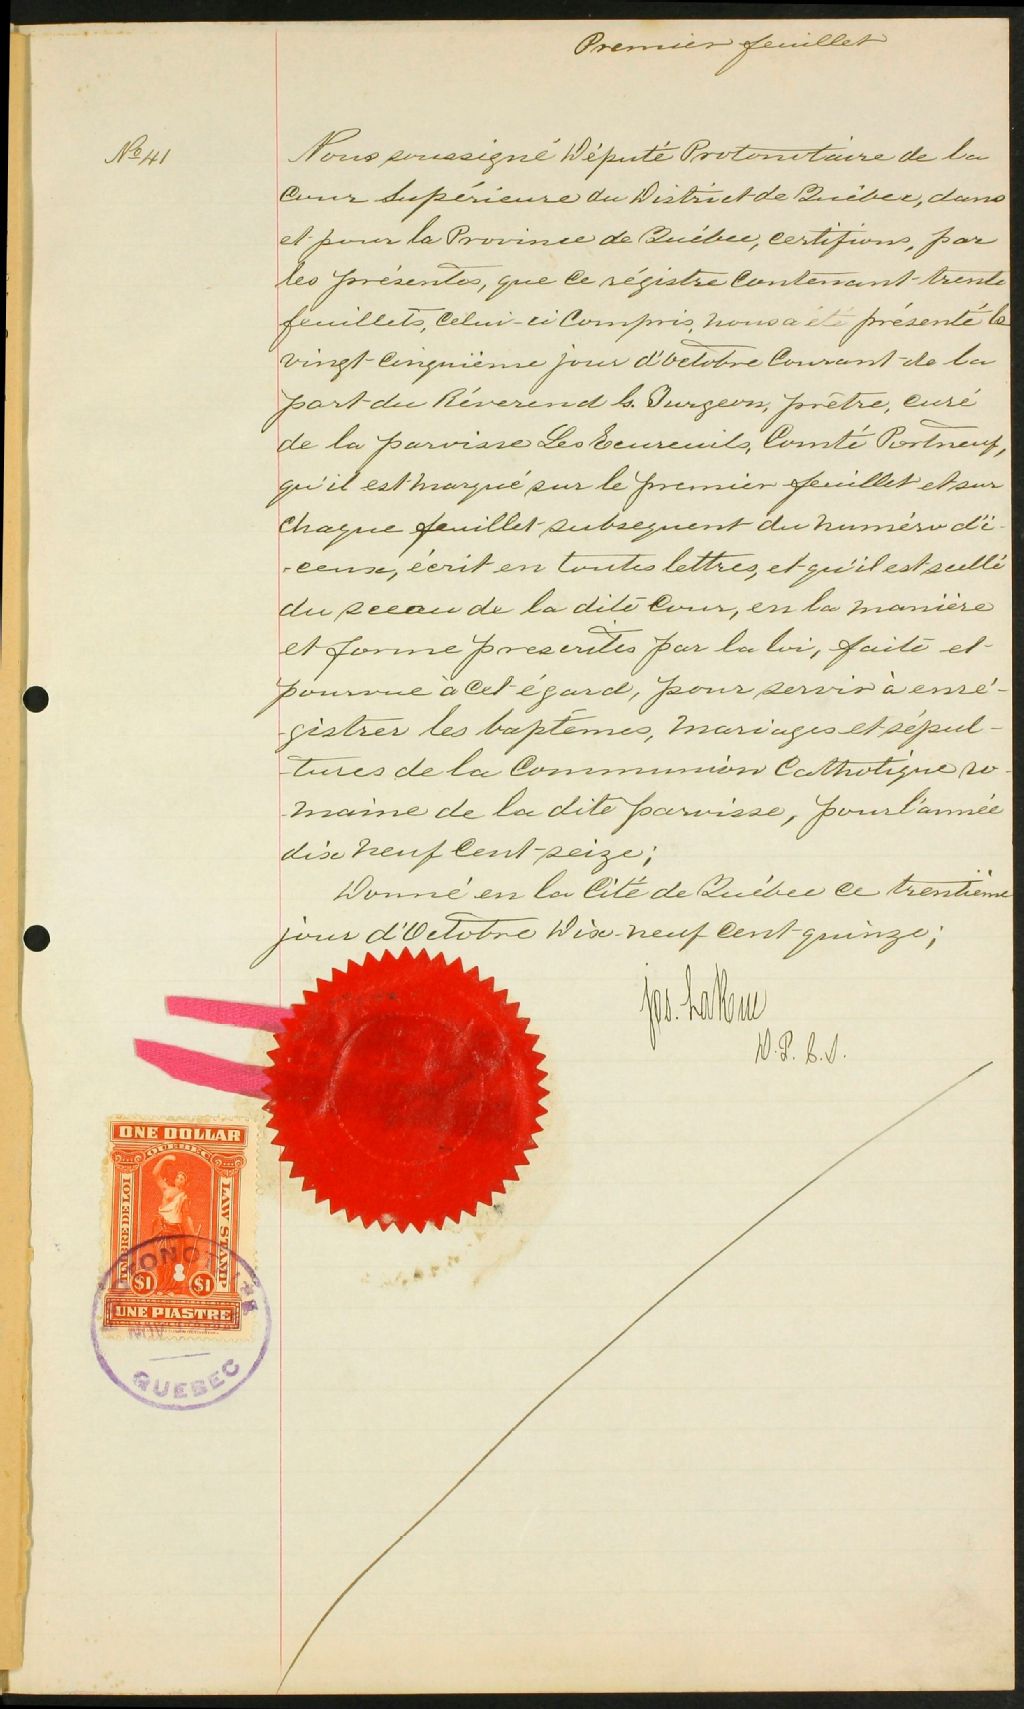 Premier feuillet
No 41
Nous soussigné Député Protonotaire de la
Cour Supérieure du District de Québec, dans
et pour la Province de Québec, certifions, par
les présentes, que ce régistre contenant trente
feuillets, celui-ci compris, nous a été présenté le
vingt-cinquième jour d'Octobre Courant de la
part du Réverend G. Turgeon, prêtre, curé
de la paroisse Les Ecureuils, Comté Portneuf,
qu'il est marqué sur le premier feuillet et sur
chaque feuillet subsequent du numéro d'i-
-ceux, écrit en toutes lettres, et qu'il est scellé
du sceau de la dite Cour, en la manière
et forme prescrites par la loi, faite et
pourvue à cet égard, pour servir à enré-
-gistrer les baptêmes, mariages et sépul-
-tures de la Communion Catholique ro-
-maine de la dite paroisse, pour l'année
dix neuf Cent-seize;
Donné en la Cité de Québec ce trentième
jour d'Octobre Dix-neuf Cent-quinze;
Jos. LaRue
D. P. C. S.
ONE DOLLAR
QUEBEC
TIMBRE DE LOI
LAW STAMP
$1 $1
UNE PIASTRE
NOV
QUEBEC